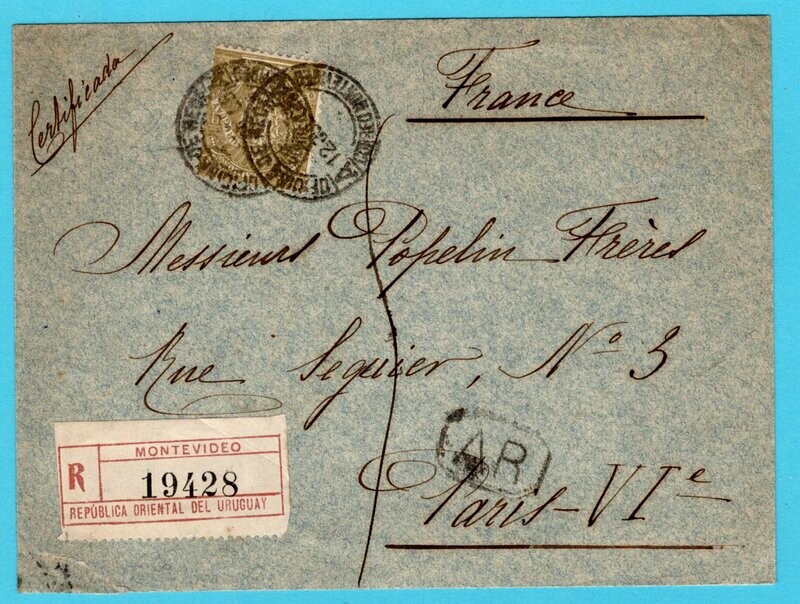 Certificada
France
Messieurs Popelin Frères
Rue Seguier, Nº 3
AR
Paris-VIe
R
MONTEVIDEO
19428
REPÚBLICA ORIENTAL DEL URUGUAY